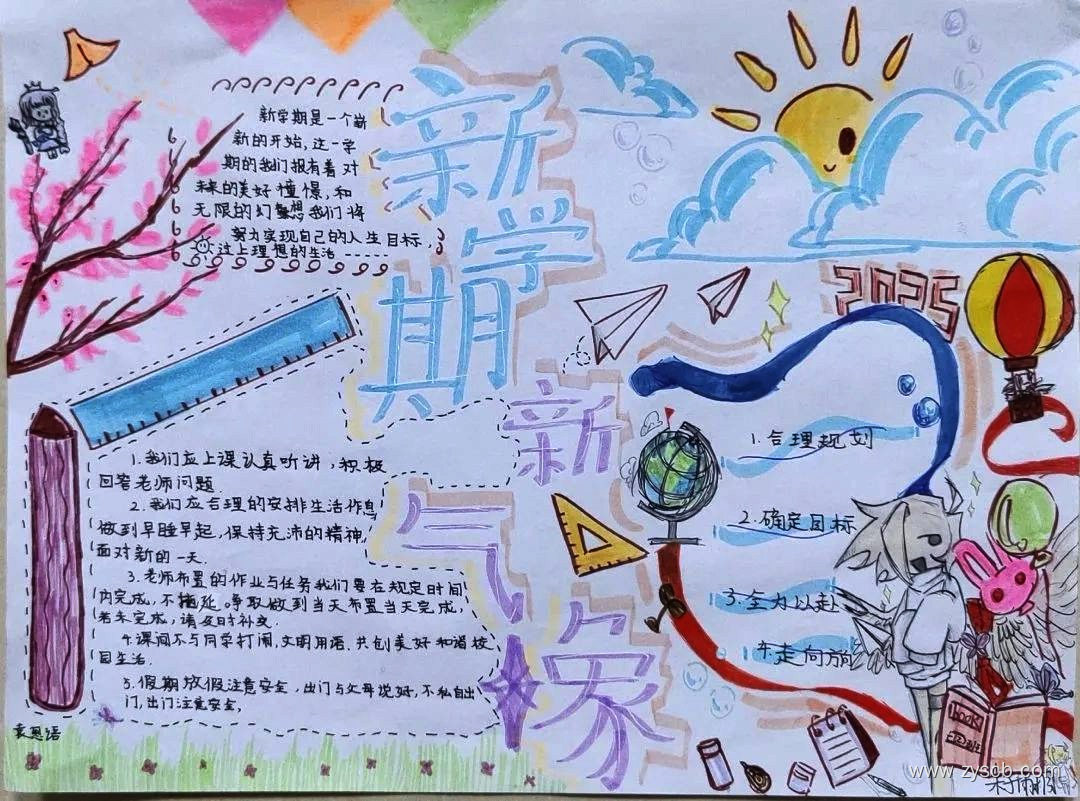 新学期
新气象
新学期是一个崭
新的开始,这一学
期的我们报有着对
未来的美好憧憬,和
无限的幻想我们将
努力实现自己的人生目标,
过上理想的生活------
1.我们应上课认真听讲,积极
回答老师问题
2.我们应合理的安排生活作息
做到早睡早起,保持充沛的精神,
面对新的一天.
3.老师布置的作业与任务我们要在规定时间
内完成,不拖延。争取做到当天布置当天完成,
若未完成,请及时补交.
4.课间不与同学打闹,文明用语.共创美好和谐校
园生活.
5.假期放假注意安全,出门与父母说好,不私自出
门,出门注意安全,
袁恩语
2025
1.合理规划
2.确定目标
3.全力以赴
4.走向
BOOK
www.zyscb.com